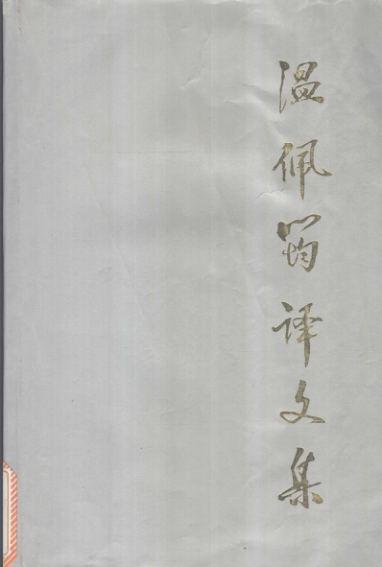 温佩筠译文集